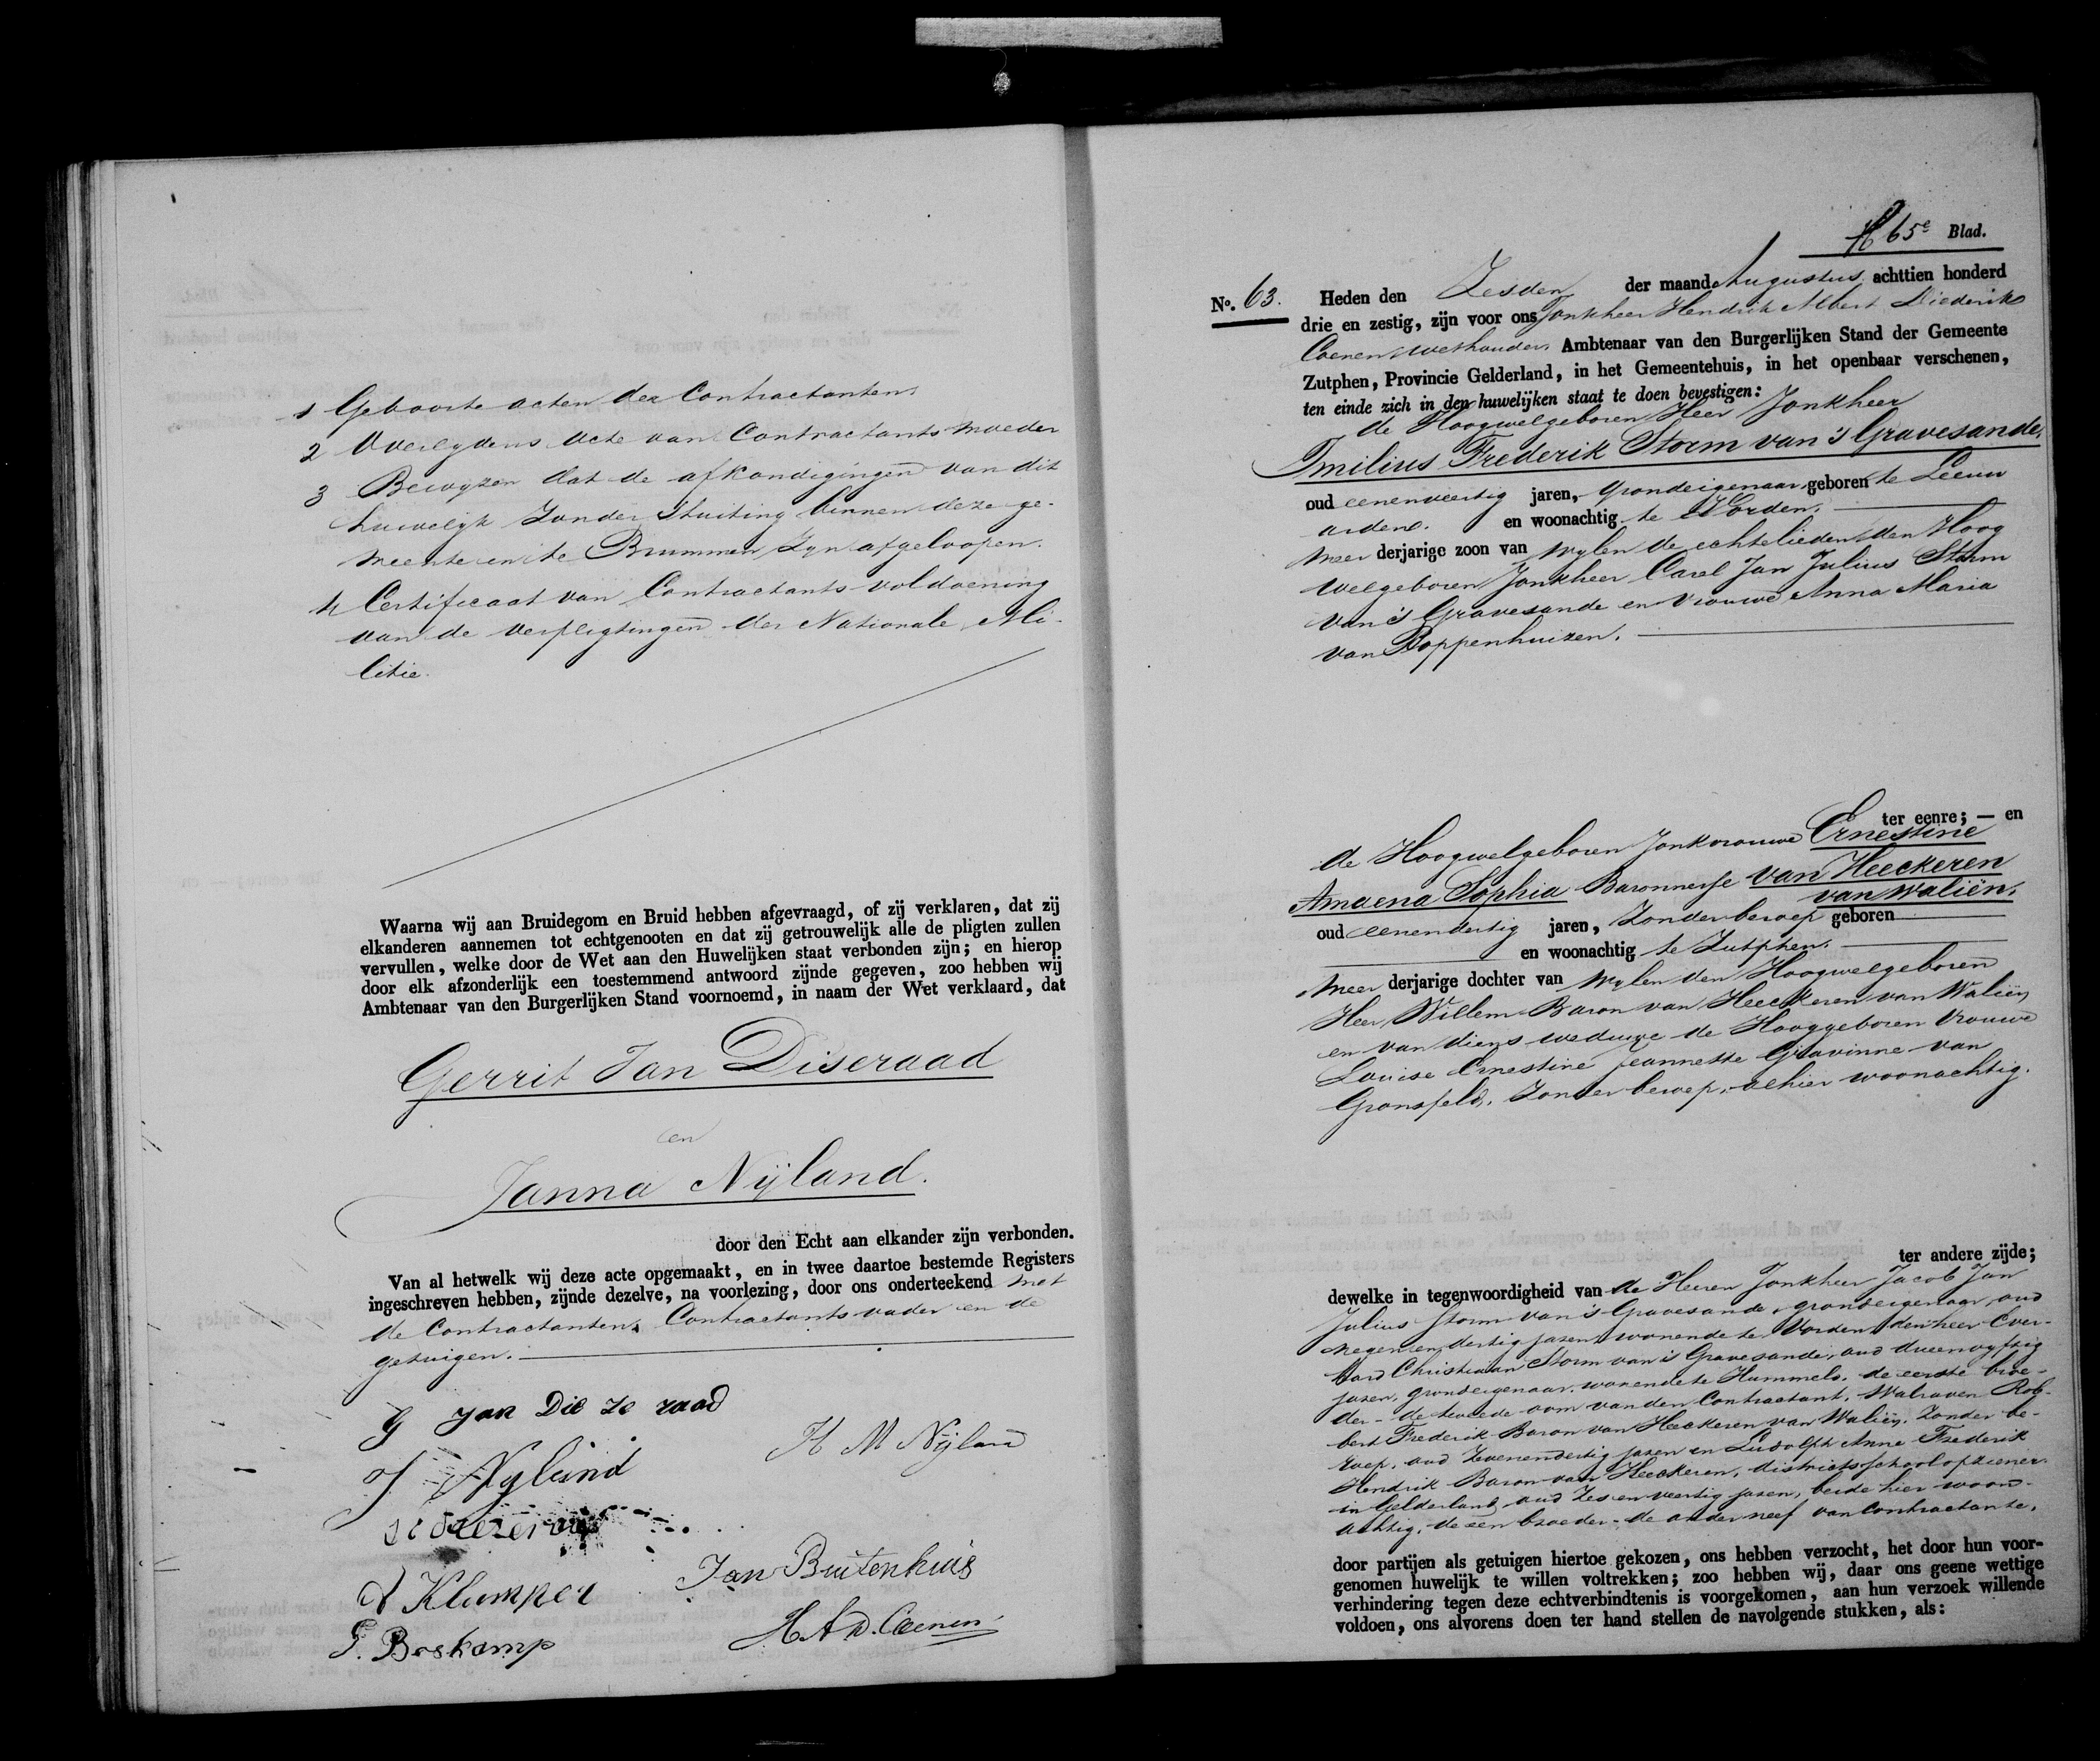 1 Geboorte acten der Contractanten.
2 Overlydens acte van Contractants moeder
3 Bewyzen dat de afkondigingen van dit
huwelyk zonder stuiting binnen deze ge-
meente en te Brummen zyn afgeloopen.
4 Certificaat van Contractants voldoening
van de verpligtingen der Nationale Mi-
litie.
Waarna wij aan Bruidegom en Bruid hebben afgevraagd, of zij verklaren, dat zij
elkanderen aannemen tot echtgenooten en dat zij getrouwelijk alle de pligten zullen
vervullen, welke door de Wet aan den Huwelijken staat verbonden zijn; en hierop
door elk afzonderlijk een toestemmend antwoord zijnde gegeven, zoo hebben wij
Ambtenaar van den Burgerlijken Stand voornoemd, in naam der Wet verklaard, dat
Gerrit Jan Diseraad
en
Janna Nijland.
door den Echt aan elkander zijn verbonden.
Van al hetwelk wij deze acte opgemaakt, en in twee daartoe bestemde Registers
ingeschreven hebben, zijnde dezelve, na voorlezing, door ons onderteekend met
de Contractanten, Contractants vader en de
getuigen.
G Jan Die ze raad
H M Nijland
J Nyland
Jan Buitenhuis
Klumper
G. Boskamp
H A D. Coenen
65e Blad.
No. 63. Heden den Zesden der maand Augustus achttien honderd
drie en zestig, zijn voor ons Jonkheer Hendrik Albert Diederik
Coenen wethouder, Ambtenaar van den Burgerlijken Stand der Gemeente
Zutphen, Provincie Gelderland, in het Gemeentehuis, in het openbaar verschenen,
ten einde zich in den huwelijken staat te doen bevestigen:
de Hoogwelgeboren Heer Jonkheer
Imilius Frederik Storm van 's Gravesande,
oud eenenveertig jaren, grondeigenaar, geboren te Leeuw
arden. en woonachtig te Vorden.
meer derjarige zoon van wylen de echtelieden den Hoog
welgeboren Jonkheer Carel Jan Julius Storm
van 's Gravesande en Vrouwe Anna Maria
van Boppenhuizen.
ter eenre; — en
de Hoogwelgeboren Jonkvrouwe Ernestine
Amaena Sophia Baronnesse van Heeckeren
van Waliën.
oud eenendertig jaren, Zonder beroep geboren
en woonachtig te Zutphen.
Meer derjarige dochter van wylen den Hoogwelgeboren
Heer Willem Baron van Heeckeren van Waliën
en van diens weduwe de Hooggeboren Vrouwe
Louise Ernestine Jeannette Gravinne van
Gronsfeld. Zonder beroep, alhier woonachtig.
ter andere zijde;
dewelke in tegenwoordigheid van de Heeren Jonkheer Jacob Jan
Julius Storm van 's Gravesande, grondeigenaar, oud
negenendertig jaren, wonende te Vorden, den heer Ever-
hard Christiaan Storm van 's Gravesande, oud drieenvyftig
jaren, grondeigenaar, wonende te Hummelo, de eerste broe-
der - de tweede oom van den Contractant. Walraven Rob-
bert Frederik Baron van Heeckeren van Waliën. Zonder be-
roep, oud Zevenendertig jaren en Ludolph Anne Frederik
Hendrik Baron van Heeckeren, districtsschoolopziener
in Gelderland, oud Zesenveertig jaren, beide hier woon-
achtig, de een broeder - de ander neef van Contractante.
door partijen als getuigen hiertoe gekozen, ons hebben verzocht, het door hun voor-
genomen huwelijk te willen voltrekken; zoo hebben wij, daar ons geene wettige
verhindering tegen deze echtverbindtenis is voorgekomen, aan hun verzoek willende
voldoen, ons alvorens doen ter hand stellen de navolgende stukken, als: